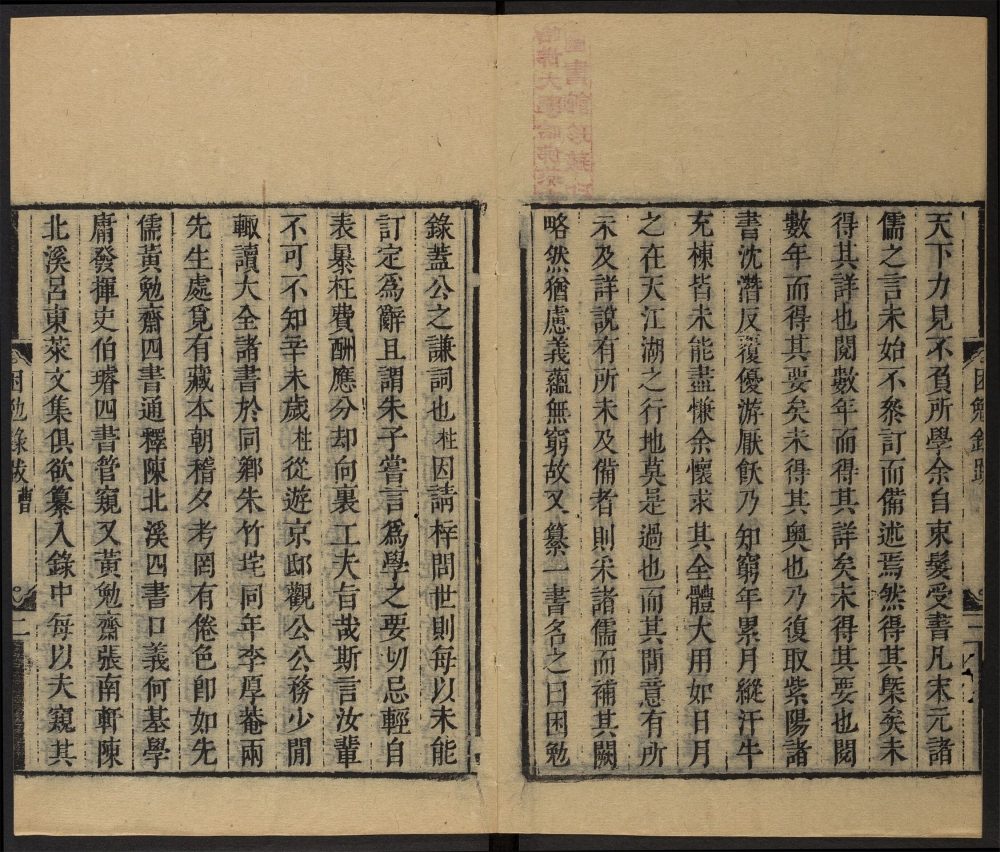 天下力見不負所學余自束髮受書凡宋元諸
儒之言未始不叅訂而備述焉然得其槩矣未
得其詳也閱數年而得其詳矣未得其要也閱
數年而得其要矣未得其奧也乃復取紫陽諸
書沈潛反覆優游厭飫乃知窮年累月縱汗牛
充棟皆未能盡慊余懷求其全體大用如日月
之在天江湖之行地莫是過也而其間意有所
未及詳說有所未及備者則采諸儒而補其闕
略然猶慮義蘊無窮故又纂一書名之曰困勉
錄蓋公之謙詞也㭍因請梓問世則每以未能
訂定爲辭且謂朱子嘗言爲學之要切忌輕自
表暴枉費酬應分却向裏工夫旨哉斯言汝輩
不可不知辛未歲㭍從遊京邸觀公公務少閒
輙讀大全諸書於同鄉朱竹垞同年李厚菴兩
先生處覓有藏本朝稽夕考罔有倦色卽如先
儒黃勉齋四書通釋陳北溪四書口義何基學
庸發揮史伯璿四書管窺又黃勉齋張南軒陳
北溪呂東萊文集俱欲纂入錄中每以夫窺其
困勉錄跋 曹
二